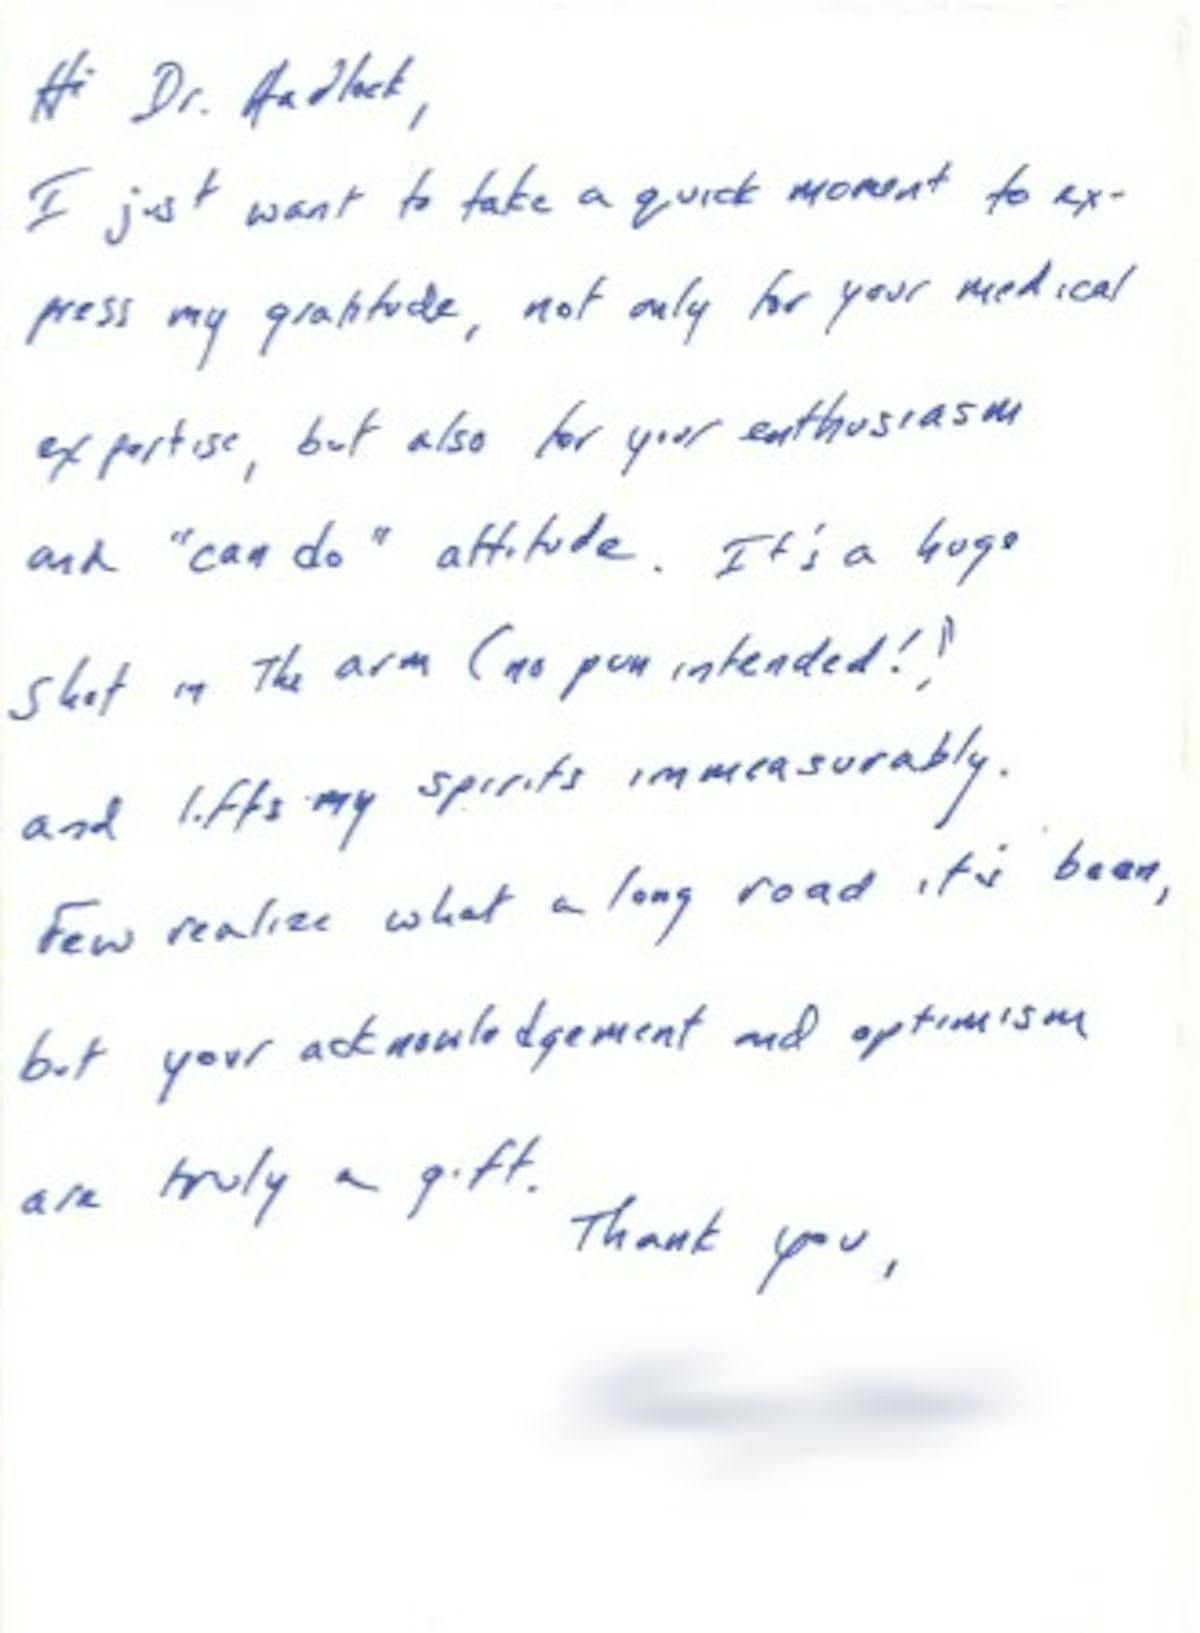 Hi Dr. Hadlock,
I just want to take a quick moment to ex-
press my gratitude, not only for your medical
expertise, but also for your enthusiasm
and "can do" attitude. It's a huge
shot in the arm (no pun intended!)
and lifts my spirits immeasurably.
Few realize what a long road it's been,
but your acknowledgement and optimism
are truly a gift.
Thank you,